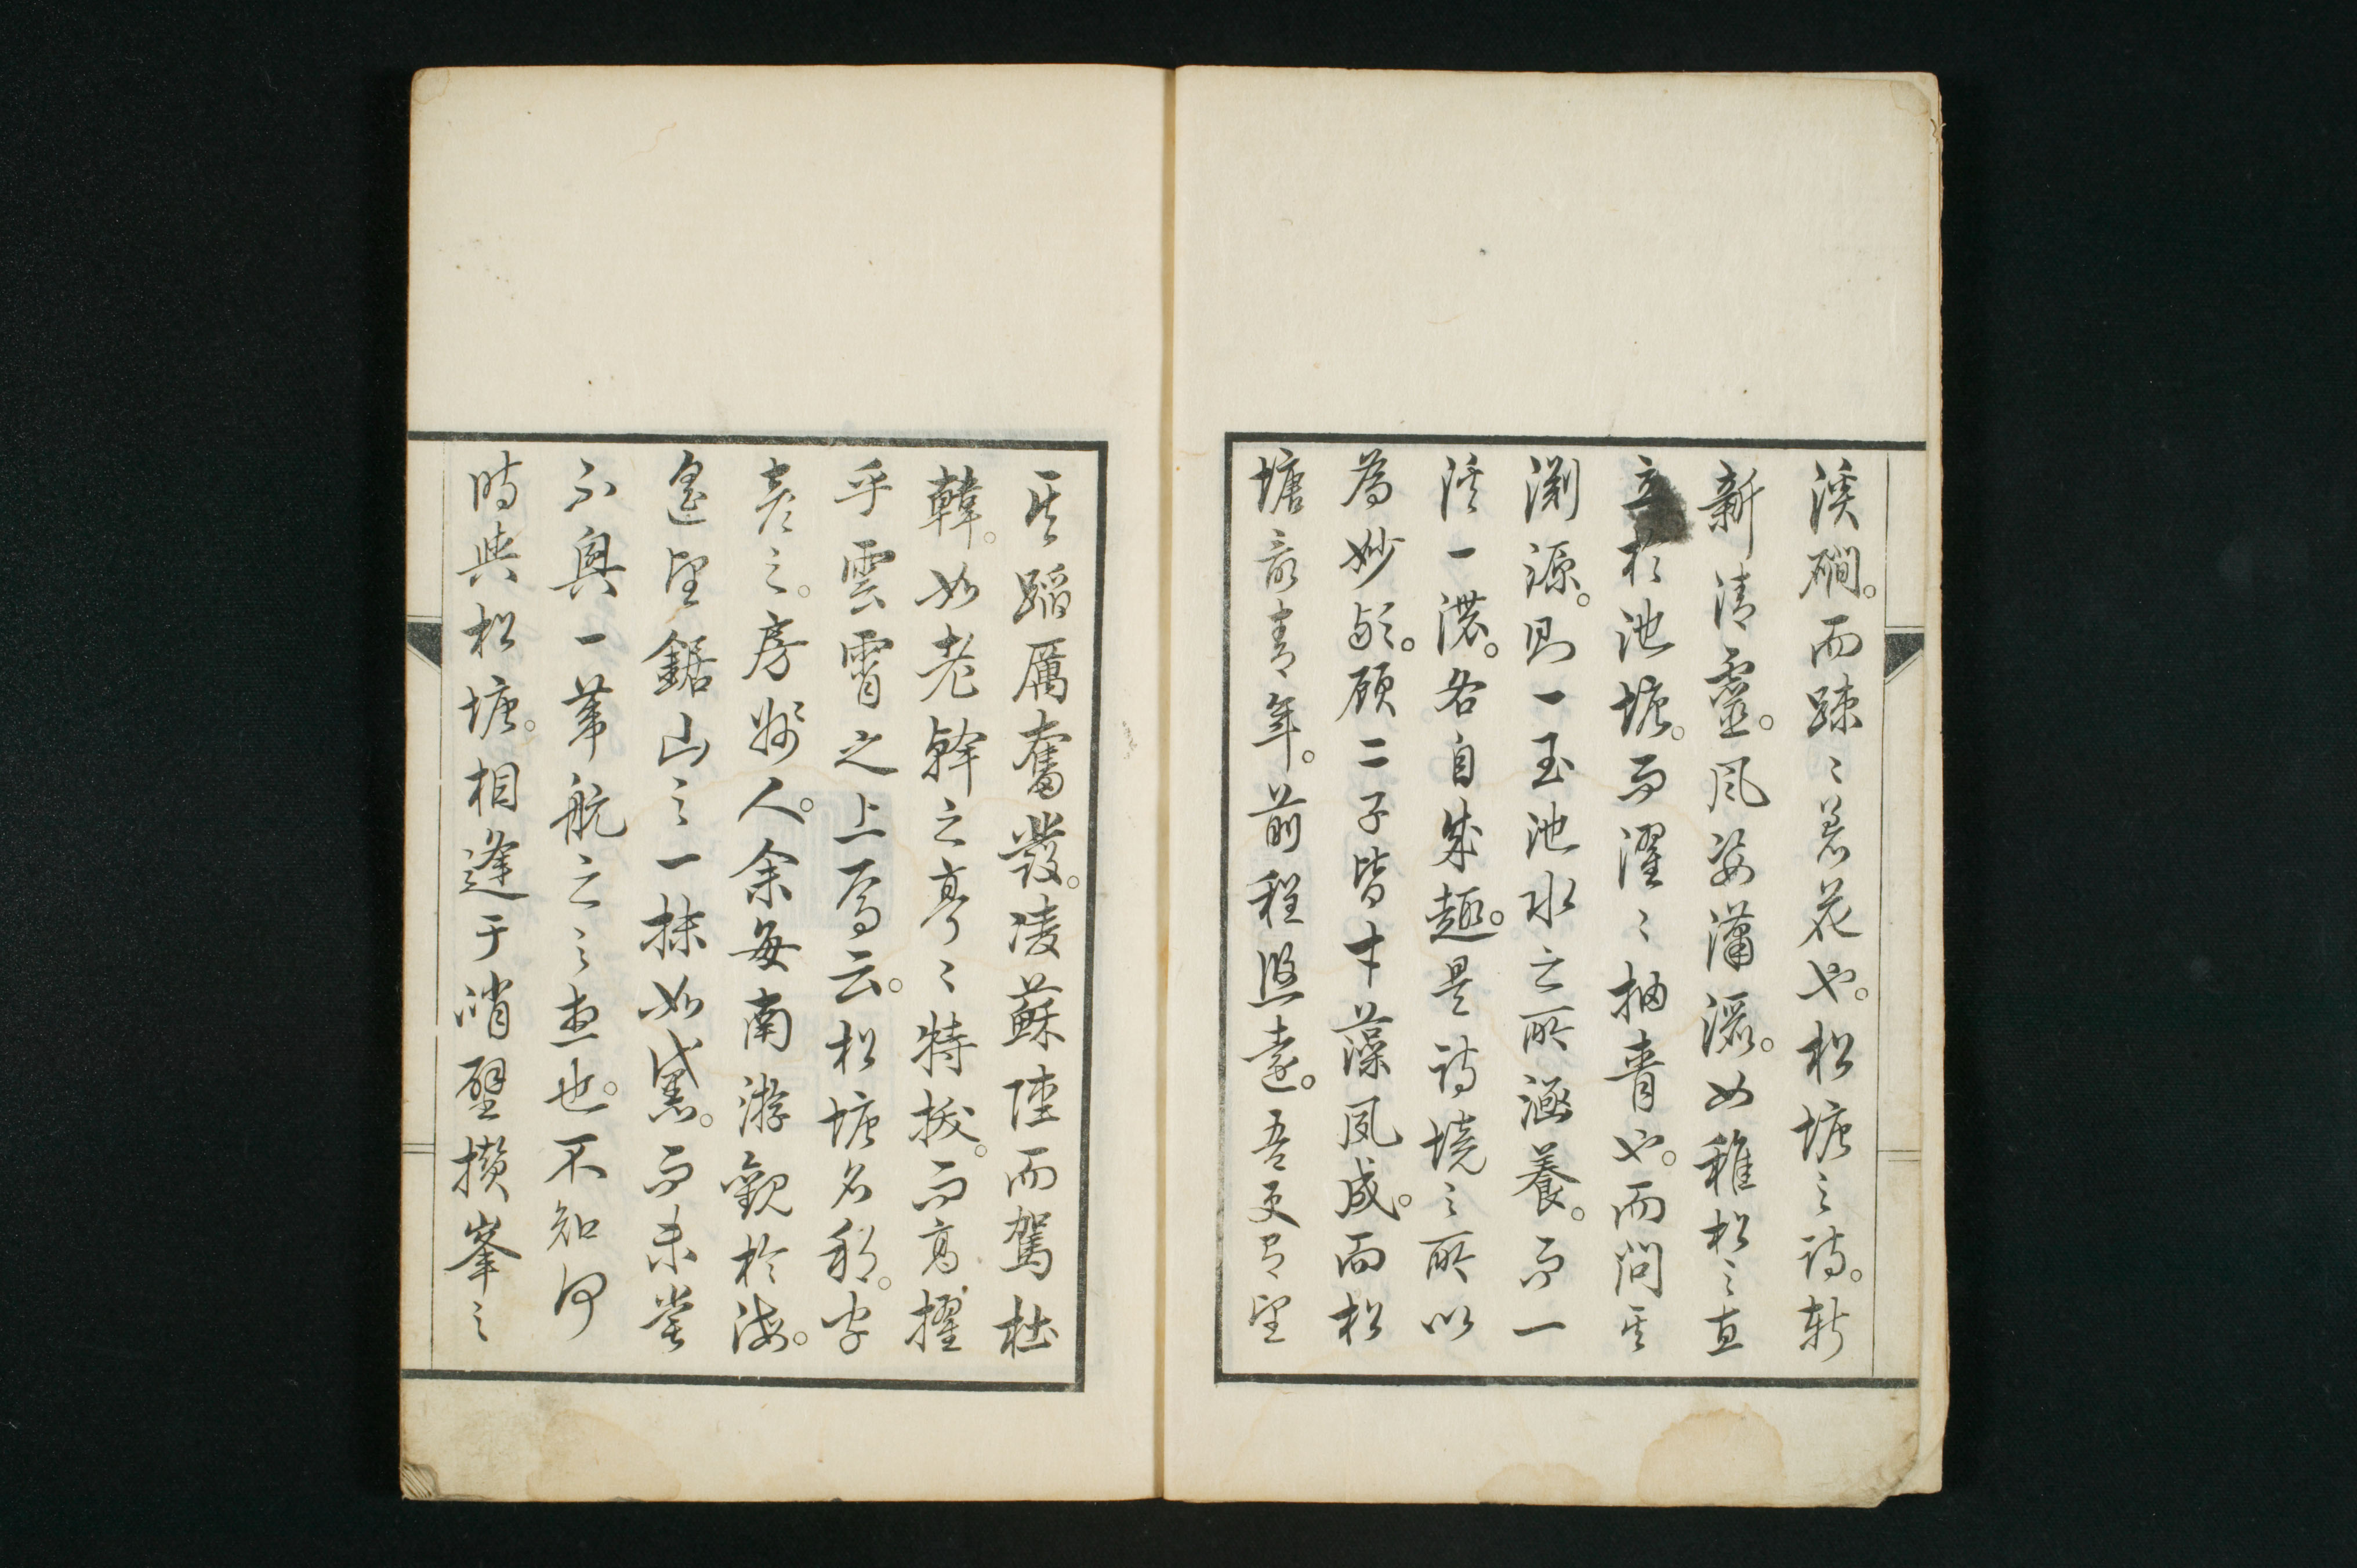 溪磵。而疎〻着花也。松塘之詩。斬
新清靈。風姿瀟洒。如稚松之直
立於池塘。而濯〻抽青也。而問其
淵源。則一玉池水之所涵養。而一
淡一濃。各自成趣。是詩境之所以
為妙歟。顧二子皆才藻夙成。而松
塘最青年。前程悠遠。吾更有望
其蹈厲奮發。凌蘇陸而駕杜
韓。如老幹之亭〻特拔。而高擢
乎雲霄之上焉云。松塘名稱。字
彦之。房州人。余每南游觀於海。
遙望鋸山之一抹如黛。而未嘗
不興一葦航之之思也。不知何
時與松塘。相逢于峭壁攢峯之